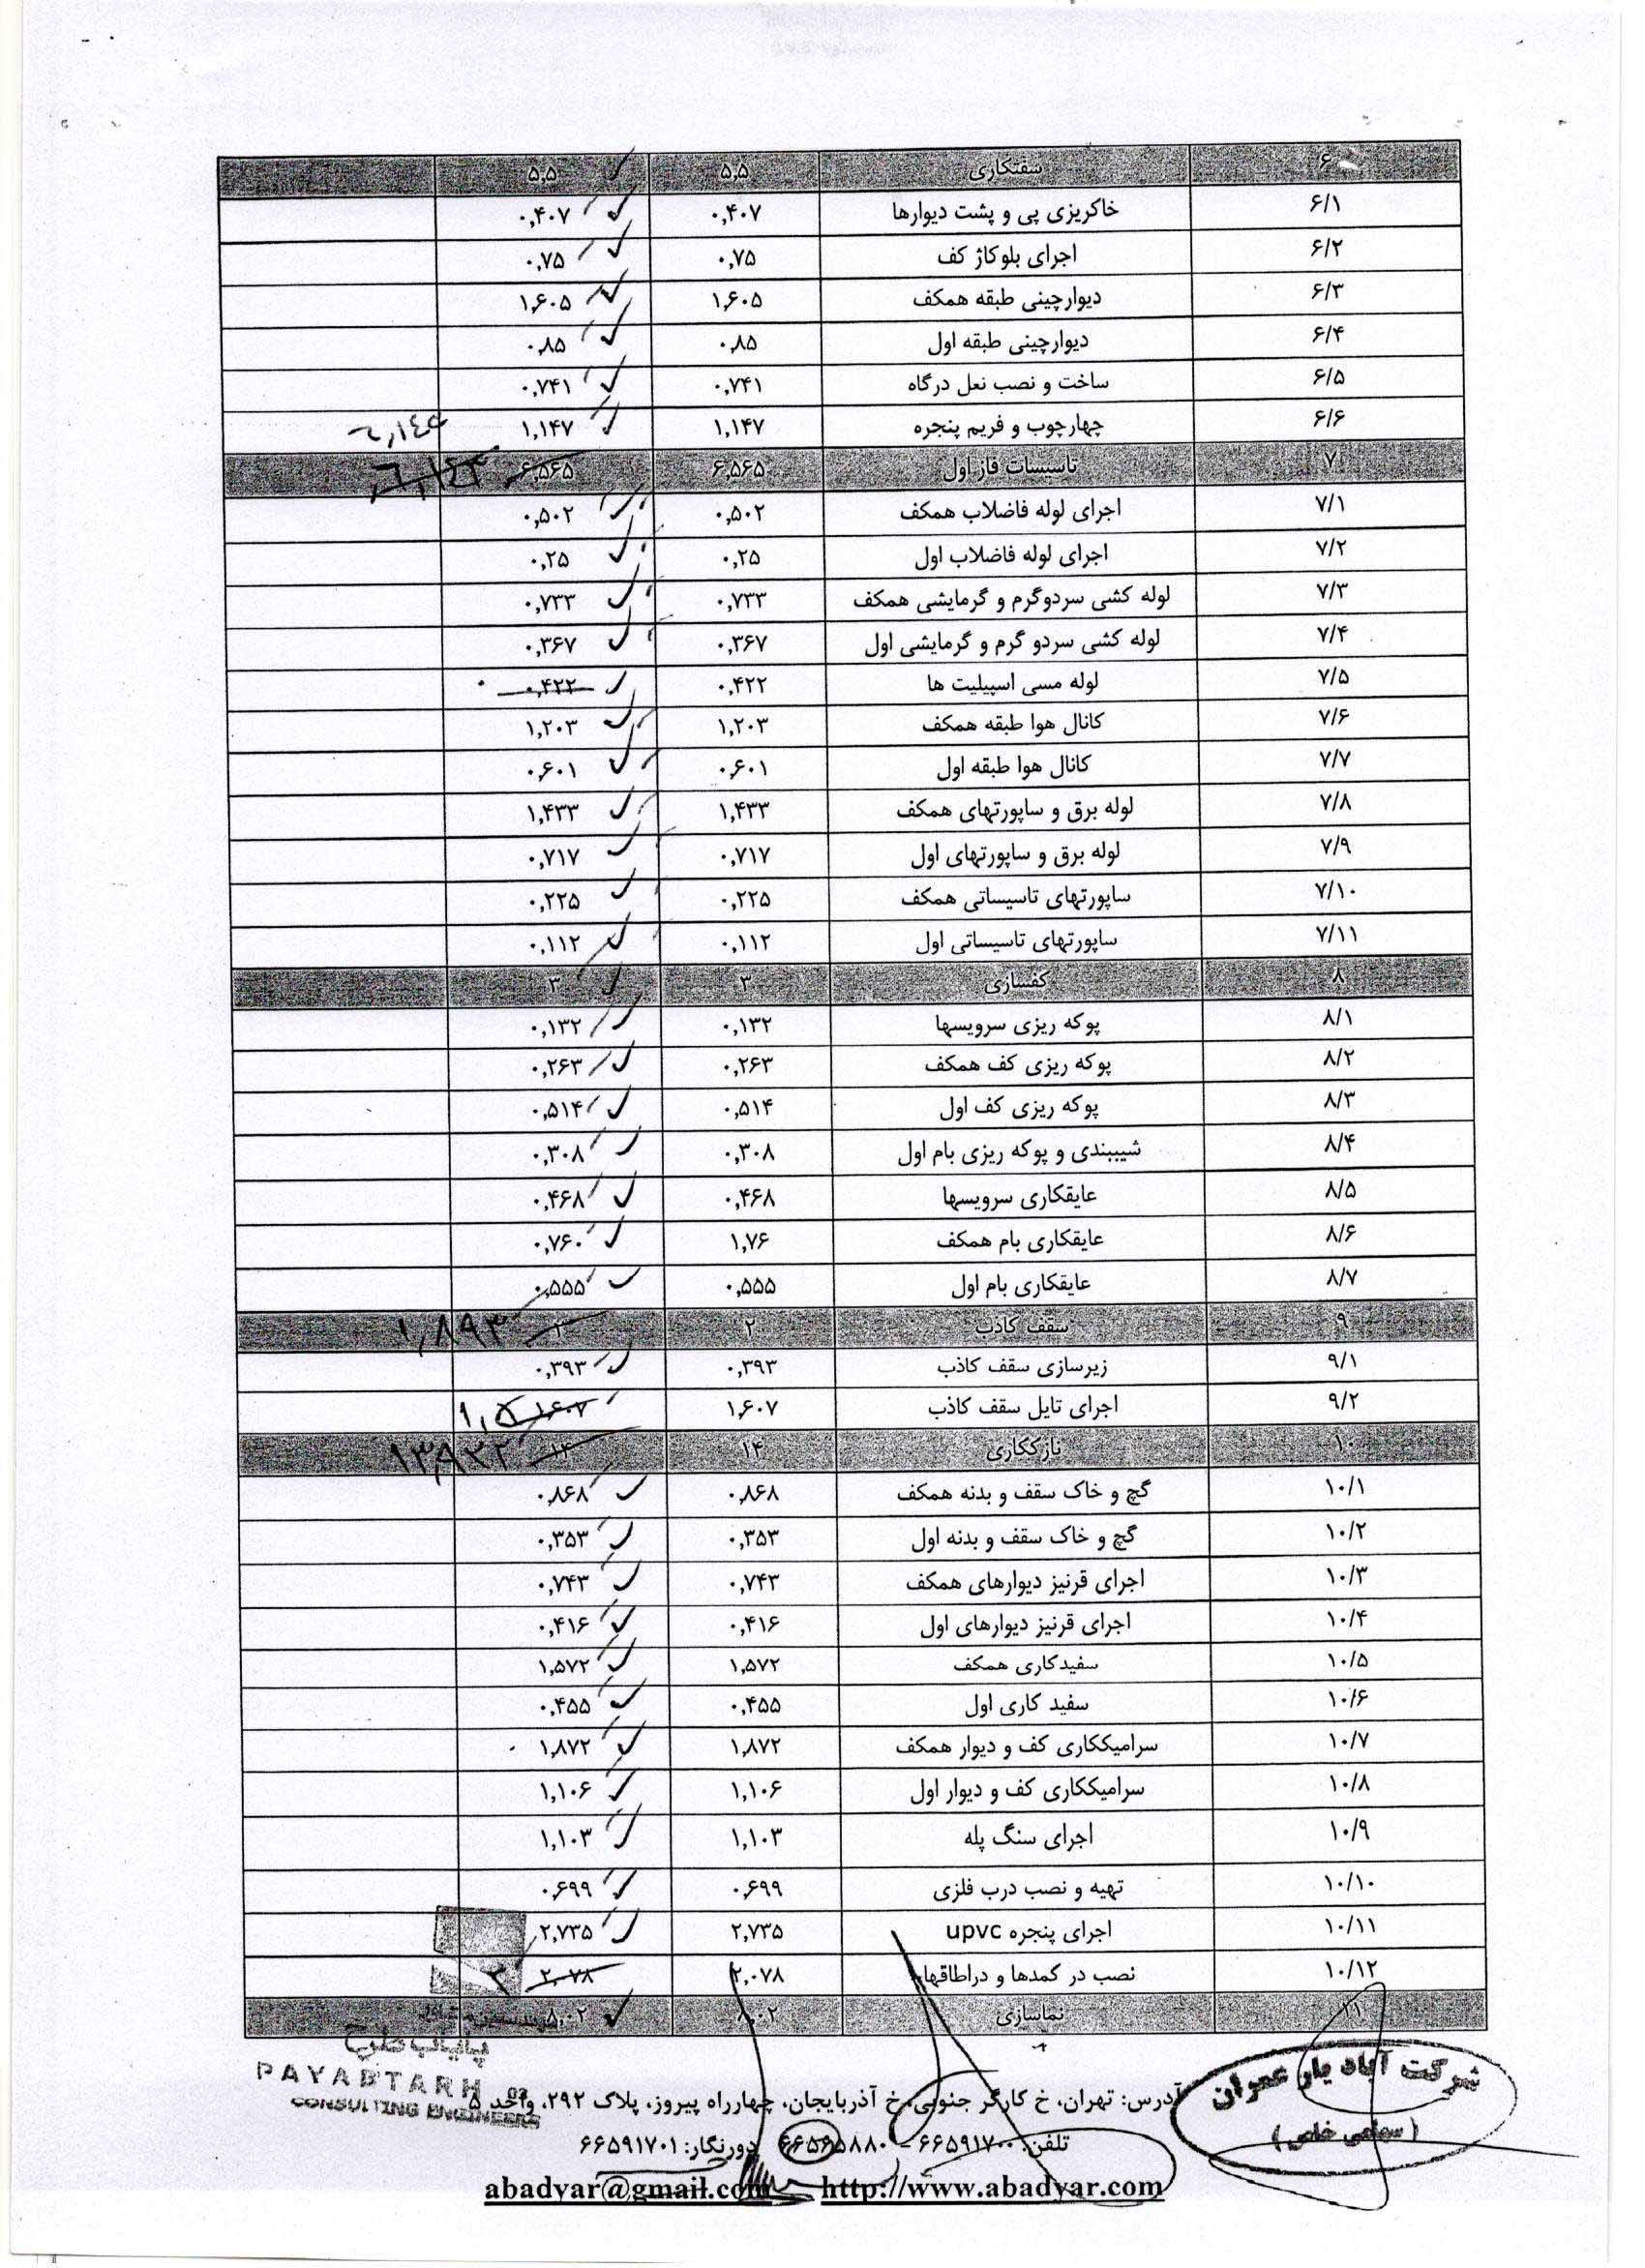 ۶ سفتکاری ۵,۵ ۵,۵
۶/۱ خاکریزی پی و پشت دیوارها ۰,۴۰۷ ۰,۴۰۷
۶/۲ اجرای بلوکاژ کف ۰,۷۵ ۰,۷۵
۶/۳ دیوارچینی طبقه همکف ۱,۶۰۵ ۱,۶۰۵
۶/۴ دیوارچینی طبقه اول ۰,۸۵ ۰,۸۵
۶/۵ ساخت و نصب نعل درگاه ۰,۷۴۱ ۰,۷۴۱
۶/۶ چهارچوب و فریم پنجره ۱,۱۴۷ ۱,۱۴۷
۷ تاسیسات فاز اول ۶,۵۶۵ ۶,۵۶۵ ۶,۱۴۳
۷/۱ اجرای لوله فاضلاب همکف ۰,۵۰۲ ۰,۵۰۲
۷/۲ اجرای لوله فاضلاب اول ۰,۲۵ ۰,۲۵
۷/۳ لوله کشی سردوگرم و گرمایشی همکف ۰,۷۳۳ ۰,۷۳۳
۷/۴ لوله کشی سردو گرم و گرمایشی اول ۰,۳۶۷ ۰,۳۶۷
۷/۵ لوله مسی اسپیلیت ها ۰,۴۲۲ ۰,۴۲۲ ۰
۷/۶ کانال هوا طبقه همکف ۱,۲۰۳ ۱,۲۰۳
۷/۷ کانال هوا طبقه اول ۰,۶۰۱ ۰,۶۰۱
۷/۸ لوله برق و ساپورتهای همکف ۱,۴۳۳ ۱,۴۳۳
۷/۹ لوله برق و ساپورتهای اول ۰,۷۱۷ ۰,۷۱۷
۷/۱۰ ساپورتهای تاسیساتی همکف ۰,۲۲۵ ۰,۲۲۵
۷/۱۱ ساپورتهای تاسیساتی اول ۰,۱۱۲ ۰,۱۱۲
۸ کفسازی ۳ ۳
۸/۱ پوکه ریزی سرویسها ۰,۱۳۲ ۰,۱۳۲
۸/۲ پوکه ریزی کف همکف ۰,۲۶۳ ۰,۲۶۳
۸/۳ پوکه ریزی کف اول ۰,۵۱۴ ۰,۵۱۴
۸/۴ شیببندی و پوکه ریزی بام اول ۰,۳۰۸ ۰,۳۰۸
۸/۵ عایقکاری سرویسها ۰,۴۶۸ ۰,۴۶۸
۸/۶ عایقکاری بام همکف ۱,۷۶ ۰,۷۶۰
۸/۷ عایقکاری بام اول ۰,۵۵۵ ۰,۵۵۵
۹ سقف کاذب ۲ ۲ ۱,۸۹۳
۹/۱ زیرسازی سقف کاذب ۰,۳۹۳ ۰,۳۹۳
۹/۲ اجرای تایل سقف کاذب ۱,۶۰۷ ۱,۶۰۷ ۱,۵
۱۰ نازککاری ۱۴ ۱۴ ۱۳,۹۲۲
۱۰/۱ گچ و خاک سقف و بدنه همکف ۰,۸۶۸ ۰,۸۶۸
۱۰/۲ گچ و خاک سقف و بدنه اول ۰,۳۵۳ ۰,۳۵۳
۱۰/۳ اجرای قرنیز دیوارهای همکف ۰,۷۴۳ ۰,۷۴۳
۱۰/۴ اجرای قرنیز دیوارهای اول ۰,۴۱۶ ۰,۴۱۶
۱۰/۵ سفیدکاری همکف ۱,۵۷۲ ۱,۵۷۲
۱۰/۶ سفید کاری اول ۰,۴۵۵ ۰,۴۵۵
۱۰/۷ سرامیککاری کف و دیوار همکف ۱,۸۷۲ ۱,۸۷۲
۱۰/۸ سرامیککاری کف و دیوار اول ۱,۱۰۶ ۱,۱۰۶
۱۰/۹ اجرای سنگ پله ۱,۱۰۳ ۱,۱۰۳
۱۰/۱۰ تهیه و نصب درب فلزی ۰,۶۹۹ ۰,۶۹۹
۱۰/۱۱ اجرای پنجره upvc ۲,۷۳۵ ۲,۷۳۵
۱۰/۱۲ نصب در کمدها و دراطاقها ۲,۰۷۸ ۲,۰۷۸ ۲
۱۱ نماسازی ۸,۰۲ ۸,۰۲
پایاب طرح
PAYABTARH
CONSULTING ENGINEERS
شرکت آباد یار عمران
(سهامی خاص)
آدرس: تهران، خ کارگر جنوبی، خ آذربایجان، چهارراه پیروز، پلاک ۲۹۲، واحد ۵
تلفن: ۶۶۵۹۱۷۰۰ - ۶۶۵۶۵۸۸۰ دورنگار: ۶۶۵۹۱۷۰۱
abadyar@gmail.com http://www.abadyar.com